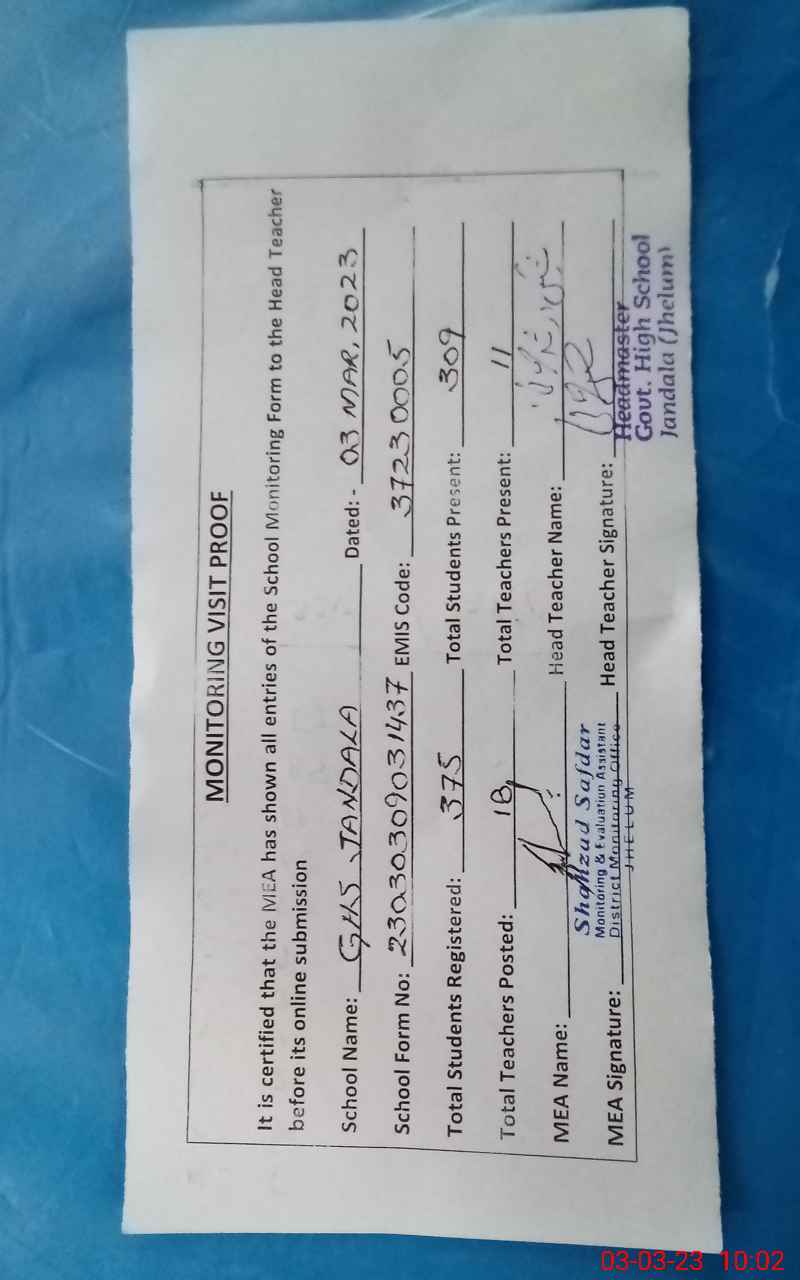 MONITORING VISIT PROOF
It is certified that the MEA has shown all entries of the School Monitoring Form to the Head Teacher
before its online submission
School Name: GHS JANDALA Dated: - 03 MAR, 2023
School Form No: 23030309031437 EMIS Code: 37230005
Total Students Registered: 375 Total Students Present: 309
Total Teachers Posted: 13 Total Teachers Present: 11
MEA Name: Head Teacher Name:
Shahzad Safdar
Monitoring & Evaluation Assistant
District Monitoring Office
JHELUM
MEA Signature: Head Teacher Signature:
Headmaster
Govt. High School
Jandala (Jhelum)
03-03-23 10:02